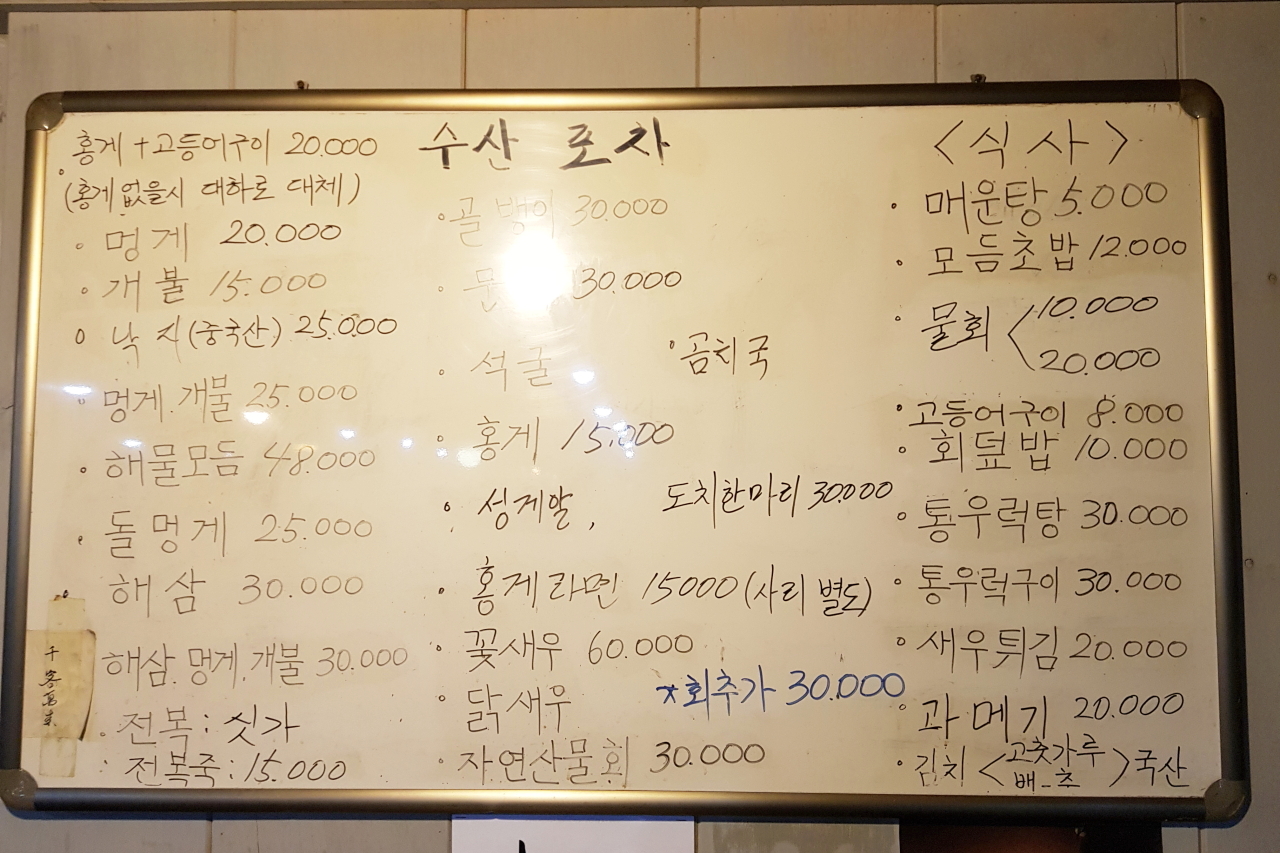 수산 포차
홍게+고등어구이 20.000
(홍게없을시 대하로 대체)
· 멍게 20.000
· 개불 15.000
o 낙지(중국산) 25.000
· 멍게.개불 25.000
· 해물모듬 48.000
· 돌멍게 25.000
해삼 30.000
해삼.멍게.개불 30.000
· 전복: 싯가
· 전복죽: 15.000
千客萬来
· 골뱅이 30.000
· 30.000
· 석굴
· 곰치국
· 홍게 15.000
· 성게알,
도치한마리 30.000
· 홍게라면 15000 (사리 별도)
· 꽃새우 60.000
· 닭새우
*회추가 30.000
· 자연산물회 30.000
<식사>
· 매운탕 5.000
· 모듬초밥 12.000
· 물회 < 10.000
20.000
· 고등어구이 8.000
· 회덮밥 10.000
· 통우럭탕 30.000
· 통우럭구이 30.000
· 새우튀김 20.000
· 과메기 20.000
· 김치 < 고춧가루
배_추 > 국산